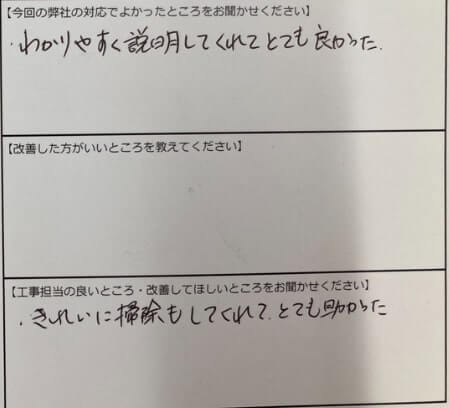 【今回の弊社の対応でよかったところをお聞かせください】
・わかりやすく説明してくれてとても良かった.
【改善した方がいいところを教えてください】
【工事担当の良いところ・改善してほしいところをお聞かせください】
・きれいに掃除もしてくれて、とても助かった